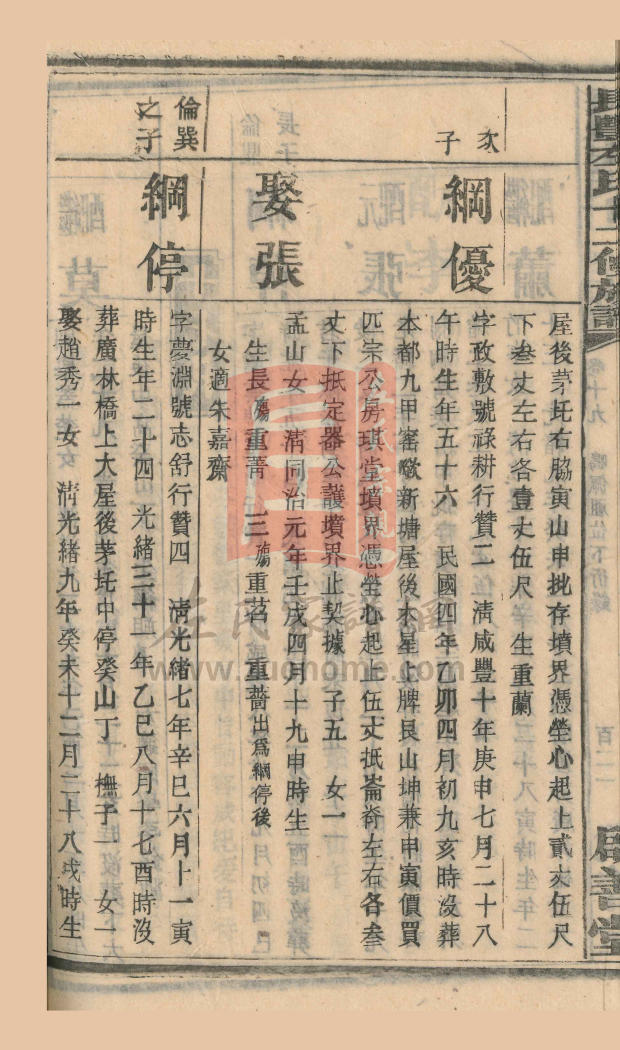 長豐左氏十二修族譜
啟善堂
屋後茅坵右脇寅山申批存墳界憑塋心起上貳丈伍尺
下叁丈左右各壹丈伍尺 生重蘭
次子
綱優
字政敷號祿耕行贊二 清咸豐十年庚申七月二十八
午時生年五十六 民國四年乙卯四月初九亥時沒葬
本都九甲窰墩新塘屋後木星上牌艮山坤兼申寅價買
匹宗公房琪堂墳界憑塋心起上伍丈抵崙脊左右各叁
丈下抵定器公護墳界止契據 子五 女一
娶張
孟山女 清同治元年壬戌四月十九申時生
生長殤重菁 三殤重茗 重薔出爲綱停後
女適朱嘉齋
倫巽之子
綱停
字夢淵號志舒行贊四 清光緒七年辛巳六月十一寅
時生年二十四 光緒三十一年乙巳八月十七酉時沒
葬廣林橋上大屋後茅坵中停癸山丁 撫子一 女一
娶趙秀一女 清光緒九年癸未十二月二十八戌時生
左氏家譜網
www.zuohome.com